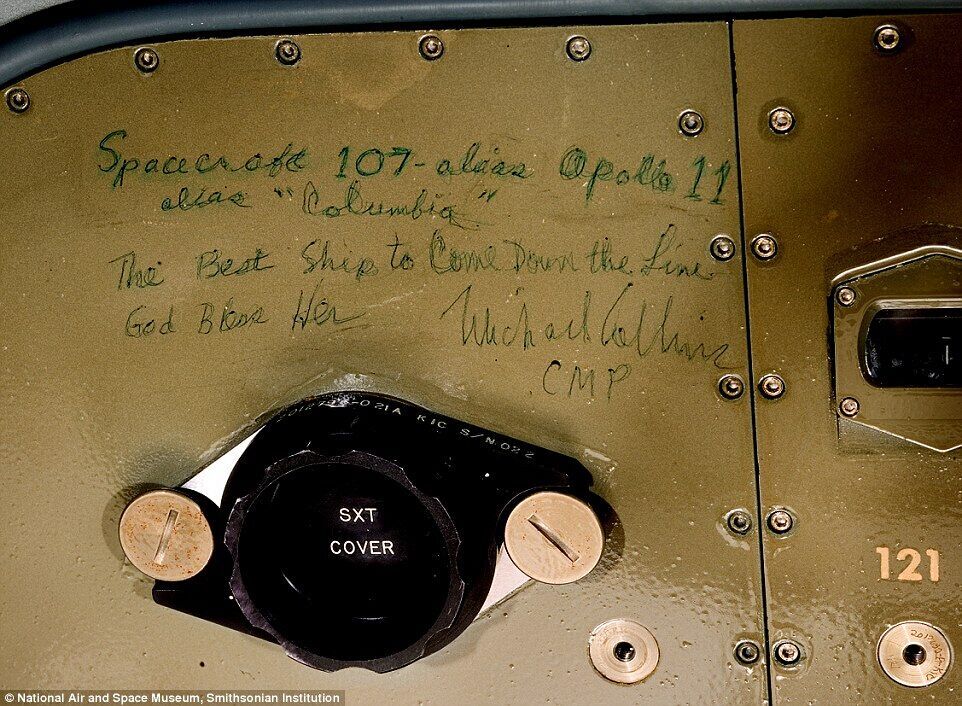 Spacecraft 107 - alias Apollo 11
alias "Columbia"
The Best Ship to Come Down the Line
God Bless Her Michael Collins
CMP
-021A KIC S/N 022
SXT
COVER
121
© National Air and Space Museum, Smithsonian Institution